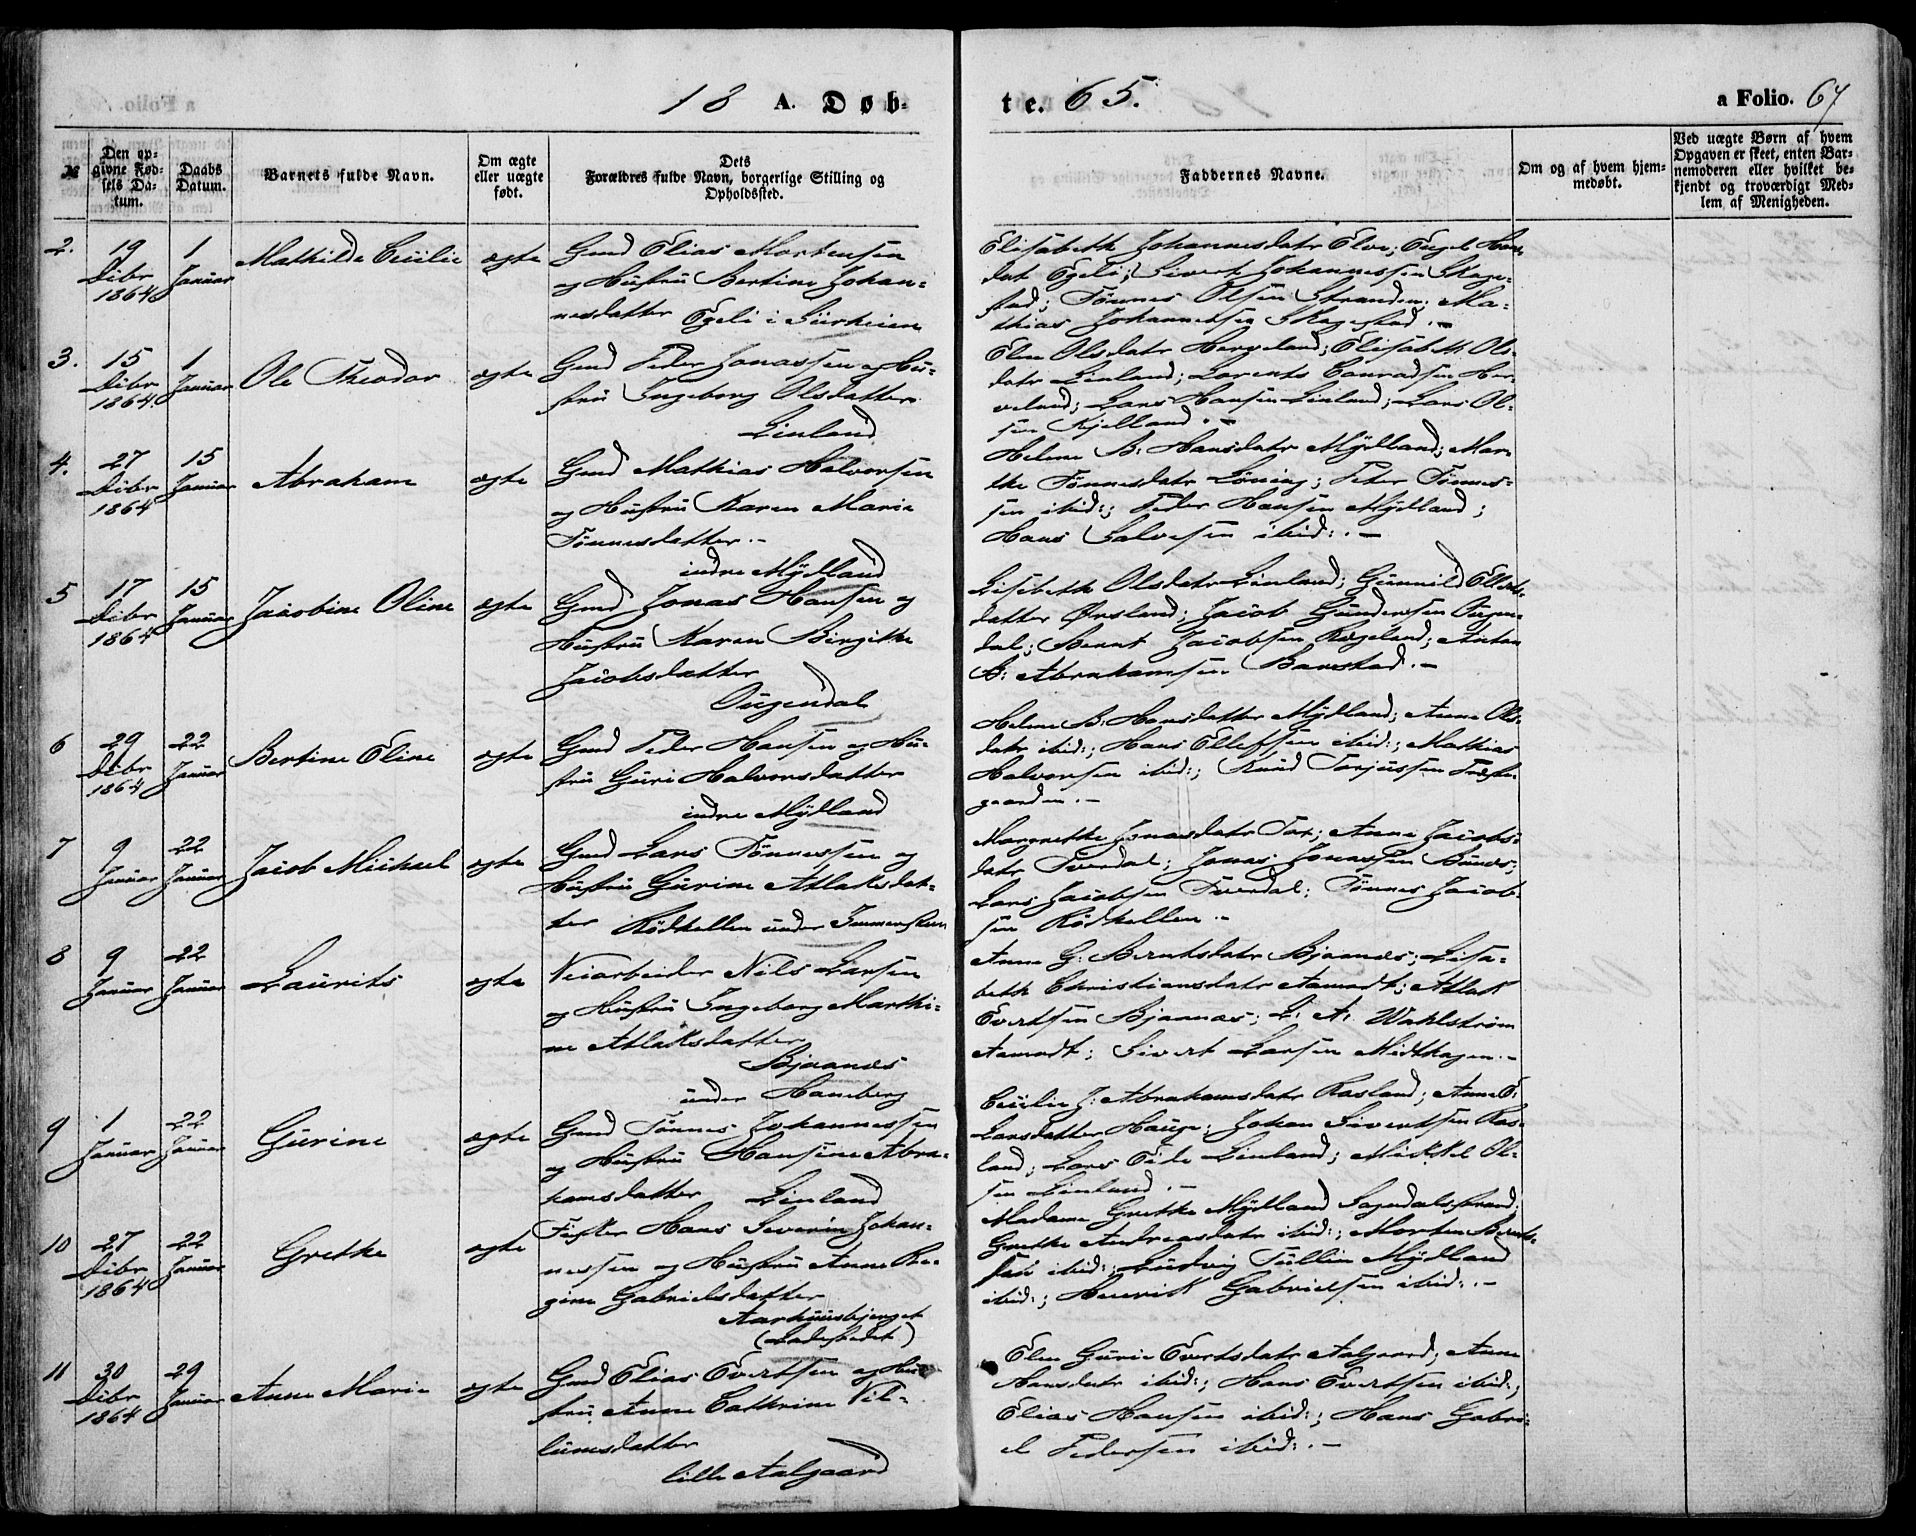 18 A. Døb-
te. 65.
a Folio. 67
№
Den op-
givne Fød-
sels Da-
tum.
Daabs
Datum.
Barnets fulde Navn.
Om ægte
eller uægte
født.
Dets
Forældres fulde Navn, borgerlige Stilling og
Opholdssted.
Faddernes Navne.
Om og af hvem hjem-
medøbt.
Ved uægte Børn af hvem
Opgaven er skeet, enten Bar-
nemoderen eller hvilket be-
kjendt og troværdigt Med-
lem af Menigheden.
2.
19
Dcbr
1864
1
Januar
Mathilde Cecilie
ægte
Gmd Elias Mortensen
og Hustru Bertine Johan-
nesdatter Egeli i
Elisabeth Johannesdatr Elve; Engel Han-
dat Egeli; Sivert Johannessen Skage-
stad; Tønnes Olsen Stranden; Ma-
thias Johannessen Skagestad.-
3.
15
Dcbr
1864.
1
Januar
Ole Theodor
ægte
Gmd Peder Jonassen og Hu-
stru Ingeborg Olsdatter
Linland
Elen Olsdatr Herveland; Elisabeth Ols-
datr Linland; Lorents Conradsen Her-
veland; Lars Hansen Linland; Lars Ol-
sen Kjelland.-
4.
27
Dcbr
1864
15
Januar
Abraham
ægte
Gmd Mathias Halvorsen
og Hustru Karen Marie
Tønnesdatter.-
indre Mydland
Helene B: Hansdatr Mydland; Mar-
the Tønnesdatr Løning; Peter Tønnes-
sen ibid:; Peder Hansen Mydland;
Hans Salvesen ibid:.-
5
17
Dcbr
1864
15
Januar
Jacobine Oline
ægte
Gmd Jonas Hansen og
Hustru Karen Birgitte
Jacobsdatter
Ougendal
Lisebeth Olsdatr Linland; Gunnild Ellefs-
datter Ørsland; Jacob Gundersen Ougen-
dal; Bernt Jacobsen Rægeland; Anton
B: Abrahamsen Barstad.-
6
29
Dcbr
1864
22
Januar
Bertine Eline
ægte
Gmd Peder Hansen og Hu-
stru Guri Halvorsdatter
indre Mydland
Helene B: Hansdatter Mydland; Anne Ols-
datr ibid:; Hans Ellefsen ibid:; Mathias
Halvorsen ibid:; Knud Torjussen Præste-
gaarden.-
7
9
Januar
22
Januar
Jacob Michael
ægte
Gmd Lars Tønnessen og
Hustru Gurine Atlaksdat-
ter Rødhellen under
Margrethe Jonasdatr Tor; Anne Jacobs-
datr Tverdal; Jonas Jonassen
Lars Jacobsen Tverdal; Tønnes Jacob-
sen Rødhellen.-
8
9
Januar
22
Januar
Laurits
ægte
Veiarbeider Nils Larsen
og Hustru Ingeborg Marthi-
ne Atlaksdatter
Bjaanæs
under Haneberg
Anne G: Berntsdatr Bjaanæs; Lisa-
beth Christiansdatr Aamodt; Atlak
Evertsen Bjaanæs; L: A: Wahlstrøm
Aamodt; Sivert Larsen Midthagen.-
9
1
Januar
22
Januar
Gurine
ægte
Gmd Tønnes Johannessen
og Hustru Hansine Abra-
hamsdatter Linland
Cecilie J: Abrahamsdatr Rosland; Anne E:
Larsdatter Hauge; Johan Sivertsen Ros-
land; Lars Linland; Mikkel Ol-
sen Linland.-
10
27
Dcbr
1864
22
Januar
Grethe
ægte
Fisker Hans Severin Johan-
nessen og Hustru Anne Re-
gine Gabrielsdatter
Aarhuusbjerget
(Ladestedet)
Madame Grethe Mydland Sogndalsstrand;
Grethe Andreasdatr ibid:; Morten Bernt-
sen ibid:; Ludvig Tullin Mydland
ibid:; Henrik Gabrielsen ibid:.-
11
30
Dcbr
1864
29
Januar
Anne Marie
ægte
Gmd Elias Evertsen og Hu-
stru Anne Cathrine Vil-
lumsdatter
lille Aalgaard
Elen Gurie Evertsdatr Aalgaard; Anne
Hansdatr ibid:; Hans Evertsen ibid:;
Elias Hansen ibid:; Hans Gabri-
el Pedersen ibid:.-